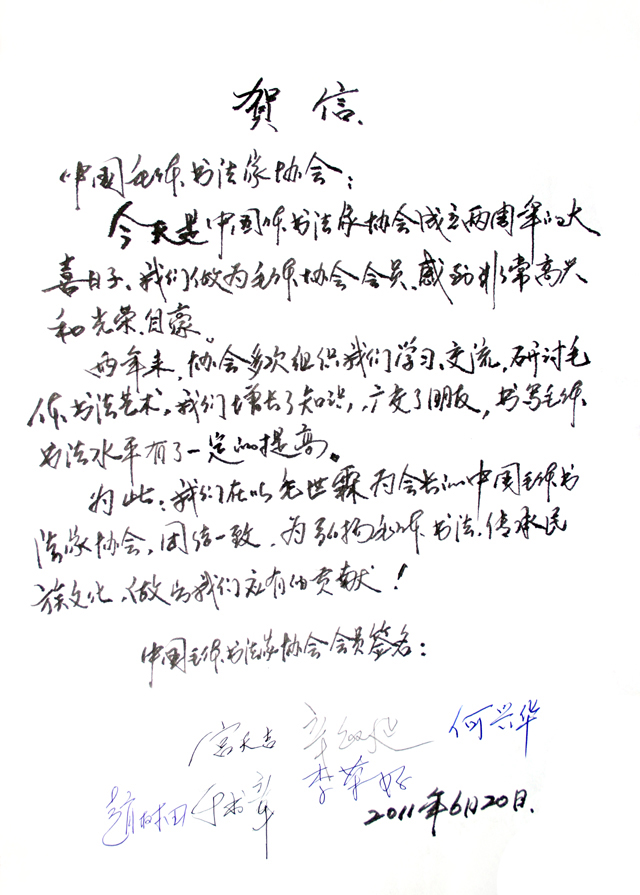 贺信
中国毛体书法家协会：
今天是中国毛体书法家协会成立两周年的大
喜日子、我们做为毛体协会会员、感到非常高兴
和光荣、自豪。
两年来，协会多次组织我们学习、交流，研讨毛
体书法艺术，我们增长了知识，广交了朋友，书写毛体
书法水平有了一定的提高。
为此：我们在以毛世霖为会长的中国毛体书
法家协会，团结一致，为弘扬毛体书法、传承民
族文化、做出我们应有的贡献！
中国毛体书法家协会会员签名：
何兴华
2011年6月20日.